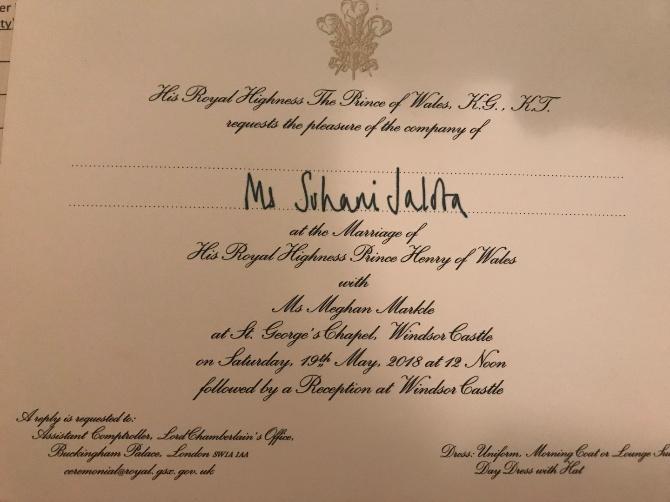 er
ty
His Royal Highness The Prince of Wales, K.G., K.T.
requests the pleasure of the company of
Ms Suhani Jalota
at the Marriage of
His Royal Highness Prince Henry of Wales
with
Ms Meghan Markle
at St. George's Chapel, Windsor Castle
on Saturday, 19th May, 2018 at 12 Noon
followed by a Reception at Windsor Castle
A reply is requested to:
Assistant Comptroller, Lord Chamberlain's Office,
Buckingham Palace, London SW1A 1AA
ceremonial@royal.gsx.gov.uk
Dress: Uniform, Morning Coat or Lounge Su
Day Dress with Hat